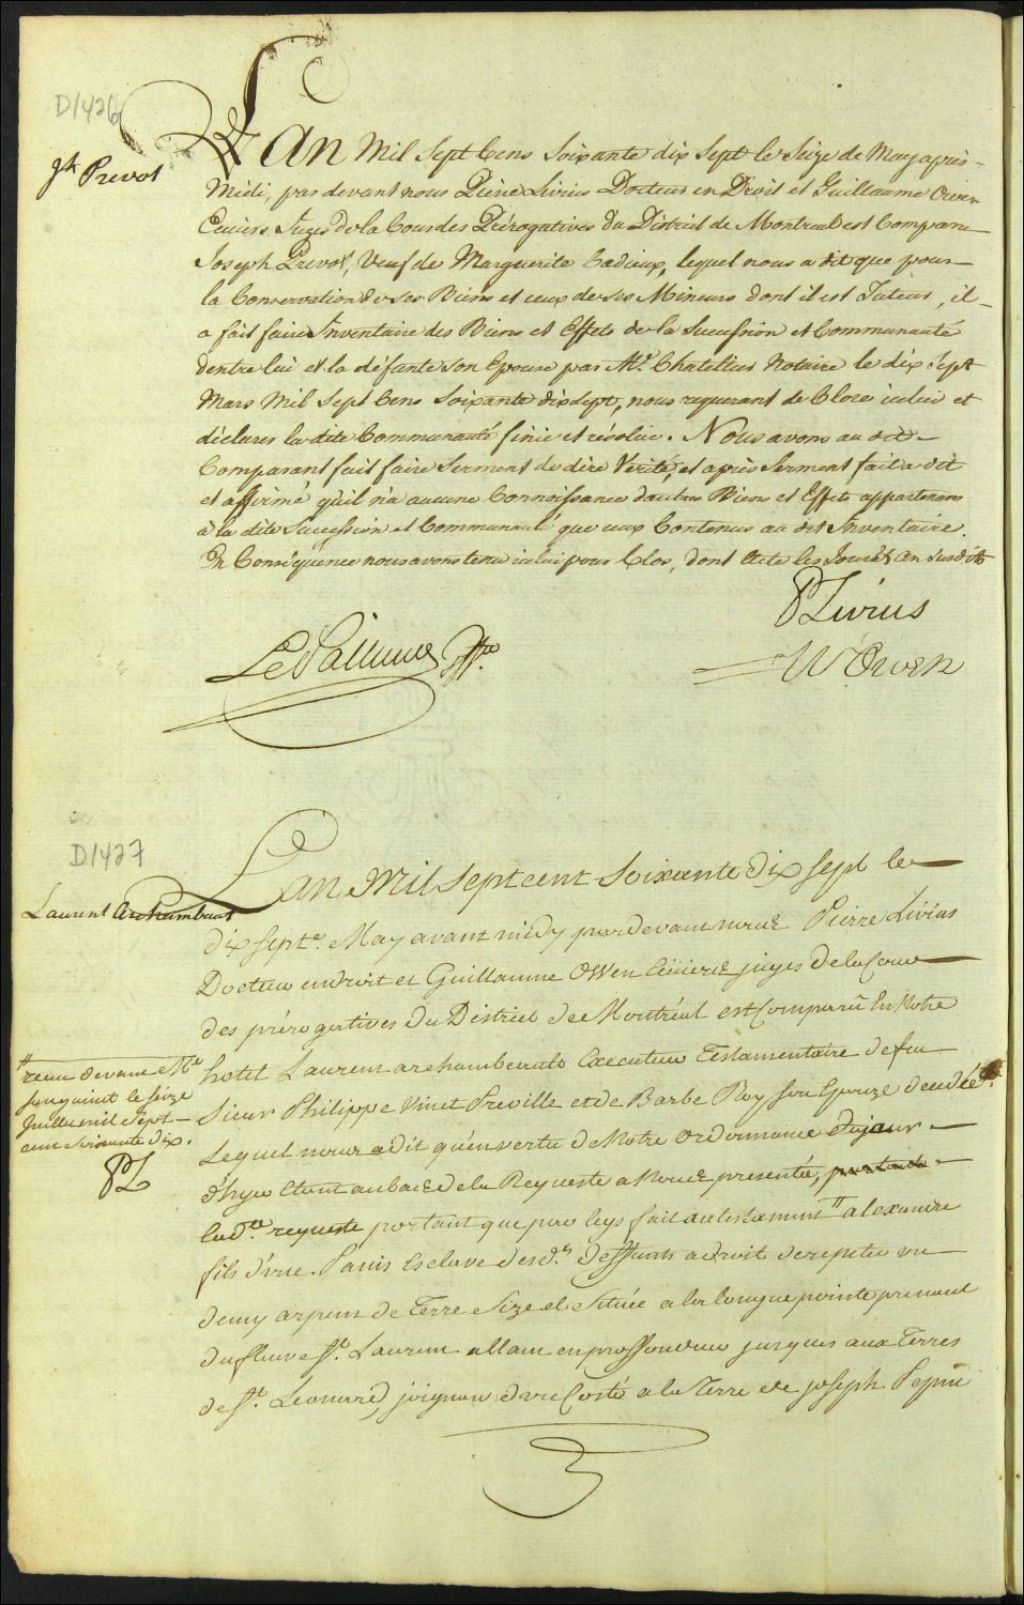 D1426
Jh Prevot
L'An Mil Sept Cens Soixante dix Sept le Seize de May après
Midi, par devant nous Pierre Livius Docteur en Droit et Guillaume Owen
Ecuiers Juges de la Cour des Prérogatives du District de Montreal est Comparu
Joseph Prevot, Veuf de Marguerite Cadieux, lequel nous a dit que pour
la Conservation de ses Biens et ceux de ses Mineurs dont il est Tuteur, il
a fait faire Inventaire des Biens et Effets de la Succession et Communauté
dentre lui et la défunte son Epouse par Me. Chatellier Notaire le dix Sept
Mars Mil Sept Cens Soixante dixsept, nous requerant de Clore icelui et
déclarer la dite Communauté finie et résolue. Nous avons au dit
Comparant fait faire Serment de dire Vérité, et après Serment fait a dit
et affirmé qu'il n'a aucune Connoissance dautres Biens et Effets appartenans
à la dite Succession et Communauté que ceux Contenus au dit Inventaire.
En Conséquence nous avons tenu icelui pour Clos, dont Acte les Jour & An Susdits
P Livius
LePallieur Gffr.
W Owen
D1427
Laurent Archambaut
L'an Mil Sept cent Soixante Dix Sept le
dix Septe. May avant midy pardevant nous Pierre Livius
Docteur en droit et Guillaume Owen Ecuiers juges de la Cour
des prérogatives Du District de Montréal est Comparû En Notre
hotel Laurent archambeault Executeur Testamentaire de feu
Sieur Philippe Vinet Preville et de Barbe Roy son Epouze decedée
Lequel nous a dit qu'en vertu de Notre Ordonnance dujour
d'hyer Etant au bas de la Requeste a Nous presentée,
lade. requeste portant que par legs fait au testament " alexandre
fils d'une Panis Esclave desds. deffunts a droit de repeter un
demy arpent de Terre Size et Située a la longue pointe prenant
du fleuve St. Laurent allant en proffondeur jusques aux Terres
de St. Leonard, joignant d'un Costé a la Terre de joseph Pepin
" recue devant Me
Sanguinet le Seize
Juillet mil Sept
cent Soixante dix.
PL